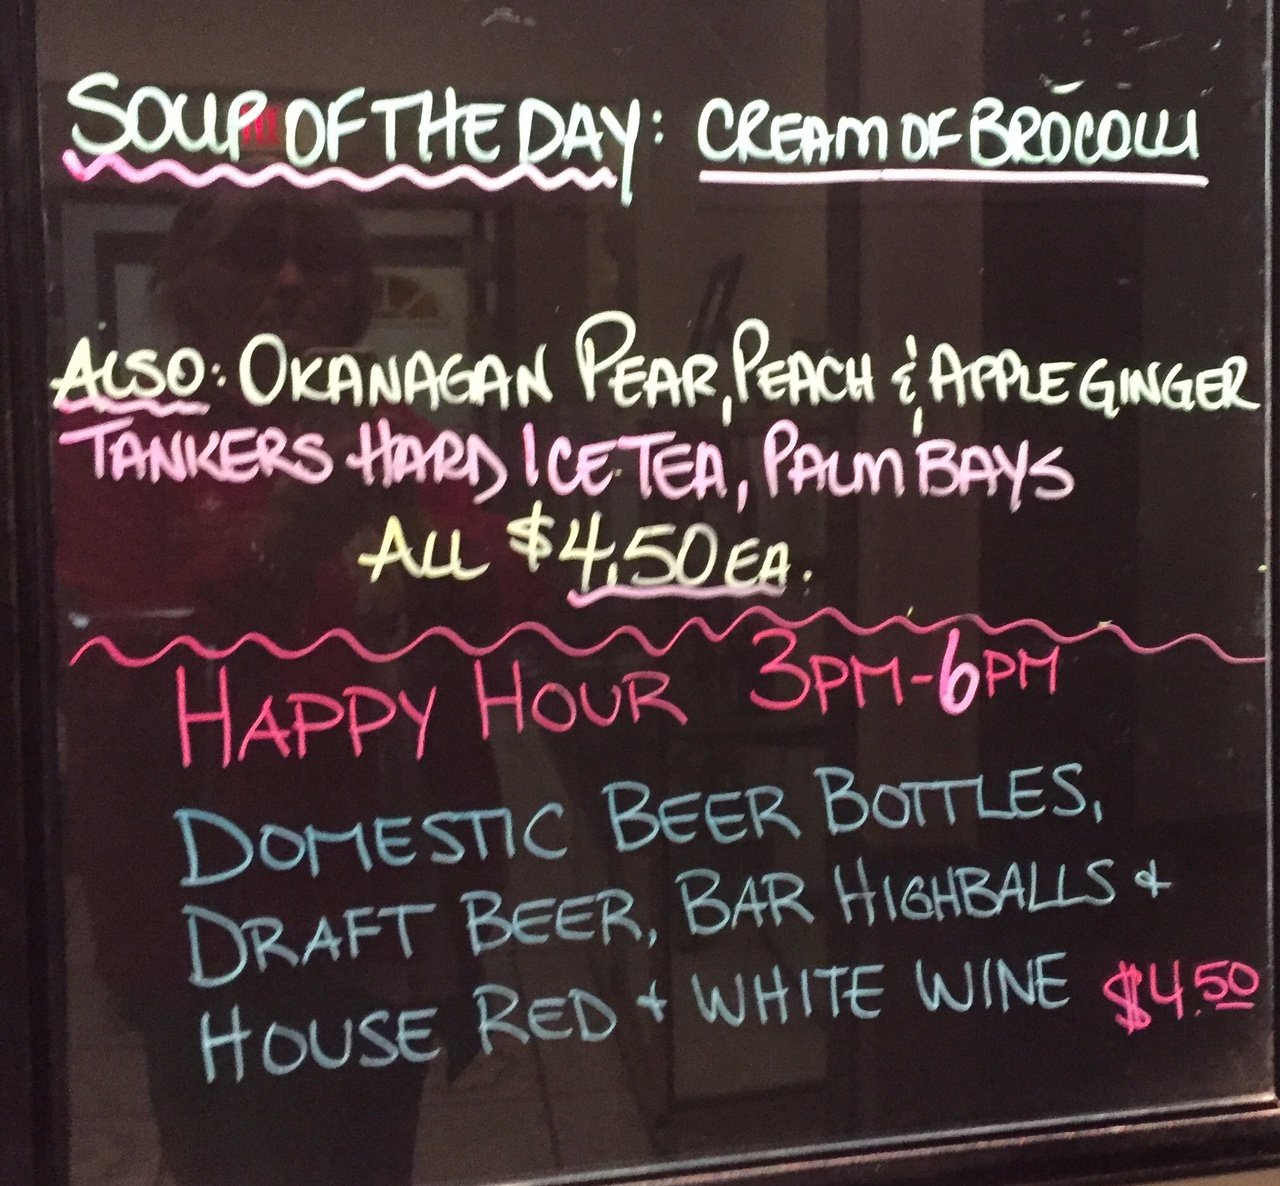 SOUP OF THE DAY: CREAM OF BROCOLLI
ALSO: OKANAGAN PEAR, PEACH & APPLE GINGER
TANKERS HARD ICE TEA, PALM BAYS
ALL $4.50 EA.
HAPPY HOUR 3PM-6PM
DOMESTIC BEER BOTTLES,
DRAFT BEER, BAR HIGHBALLS +
HOUSE RED + WHITE WINE $4.50